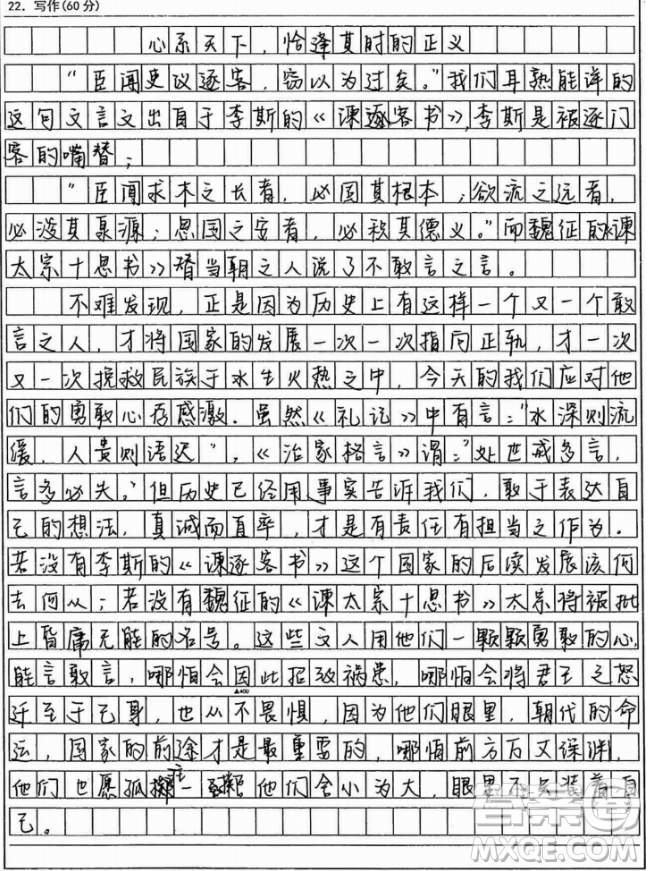 22. 写作(60分)
心系天下，恰逢其时的正义
“臣闻吏议逐客，窃以为过矣。”我们耳熟能详的
这句文言文出自于李斯的《谏逐客书》，李斯是被逐门
客的嘴替；
“臣闻求木之长者，必固其根本；欲流之远者，
必浚其泉源；思国之安者，必积其德义。”而魏征的《谏
太宗十思书》替当朝之人说了不敢言之言。
不难发现，正是因为历史上有这样一个又一个敢
言之人，才将国家的发展一次一次指向正轨，才一次
又一次挽救民族于水生火热之中，今天的我们应对他
们的勇敢心存感激．虽然《礼记》中有言：“水深则流
缓，人贵则语迟”，《治家格言》谓：“处世戒多言，
言多必失。”但历史已经用事实告诉我们，敢于表达自
己的想法，真诚而直率，才是有责任有担当之作为．
若没有李斯的《谏逐客书》这个国家的后续发展该何
去何从；若没有魏征的《谏太宗十思书》太宗将被批
上昏庸无能的名号。这些文人用他们一颗颗勇敢的心，
能言敢言，哪怕会因此招致祸患，哪怕会将君王之怒
▲400
迁至于己身，也从不畏惧，因为他们眼里，朝代的命
运，国家的前途才是最重要的，哪怕前方万丈深渊，
他们也愿孤掷一 他们舍小为大，眼里不只装着自
己。
答案圈
MXQE.COM